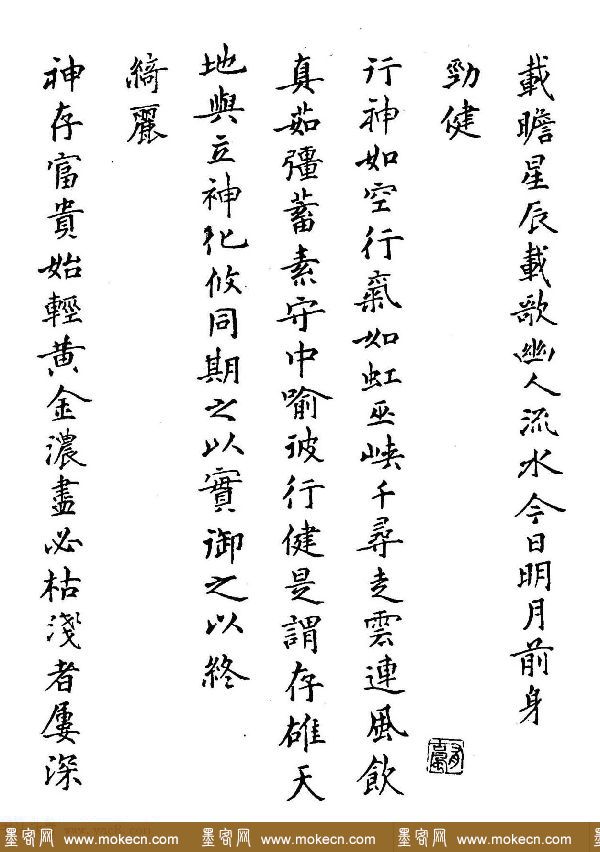 載瞻星辰載歌幽人流水今日明月前身
勁健
行神如空行氣如虹巫峽千尋走雲連風飲
真茹彊蓄素守中喻彼行健是謂存雄天
地與立神化攸同期之以實御之以終
綺麗
神存富貴始輕黃金濃盡必枯淺者屢深
墨客网 www.mokecn.com 墨客网 www.mokecn.com 墨客网 www.mokecn.com